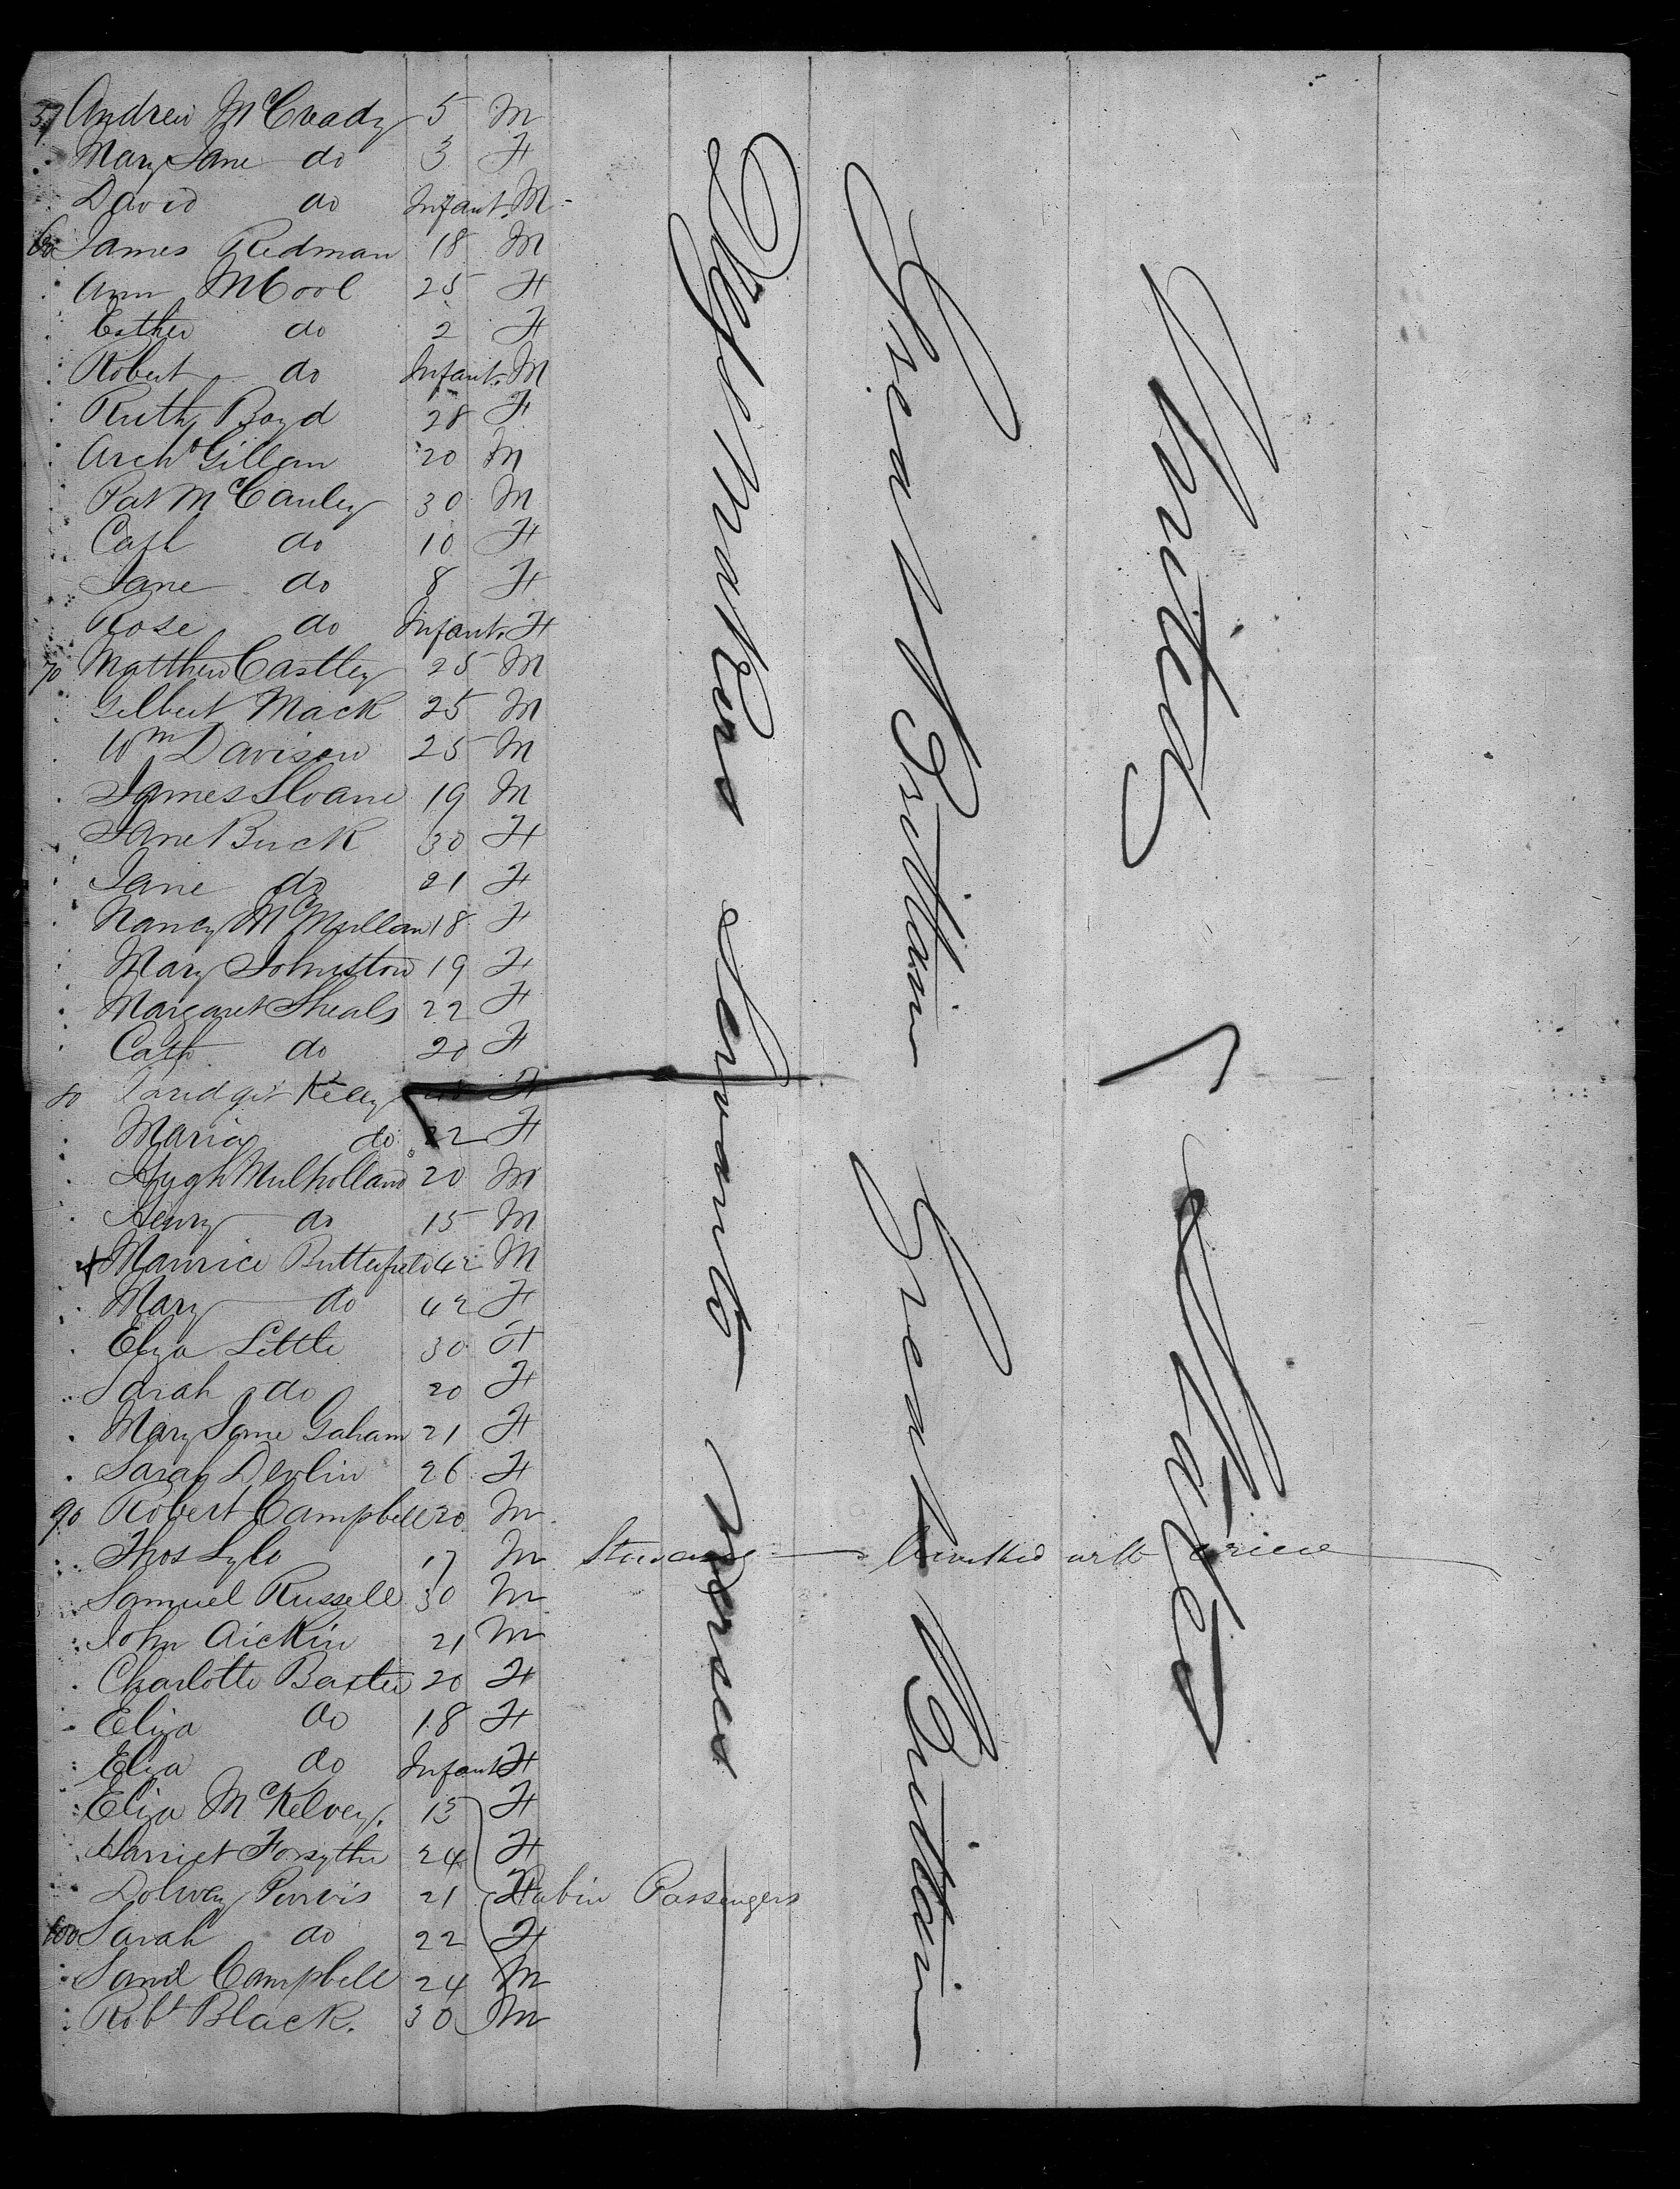 57 Andrew McCready 5 M
Mary Jane do 3 F
David do Infant M
60 James Redman 18 M
Ann McCool 25 F
Esther do 2 F
Robert do Infant M
Ruth Boyd 28 F
Archd Gillem 20 M
Pat McCauley 30 M
Cath do 10 F
Jane do 8 F
Rose do Infant F
70 Matthew Castley 25 M
Gilbert Mack 25 M
Wm Davison 25 M
James Sloane 19 M
Jane Buck 30 F
Jane do 21 F
Nancy McMullan 18 F
Mary Johnston 19 F
Margaret Sheals 22 F
Cath do 20 F
80 Bridget Kelly F
Maria do 22 F
Hugh Mulholland 20 M
Henry do 15 M
Maurice Butterfield 42 M
Mary do 42 F
Eliza Little 30 F
Sarah do 20 F
Mary Jane Gaham 21 F
Sarah Devlin 26 F
90 Robert Campbell 20 M
Thos Lyle 17 M
Samuel Russell 30 M
John Aickin 21 M
Charlotte Baxter 20 F
Eliza do 18 F
Eliza do Infant F
Eliza McKelvey 13 F
Harriet Forsythe 24 F
Dolway Purvis 21 Cabin Passengers
100 Sarah do 22 F
Saml Campbell 24 M
Robt Black. 30 M
Servants
Great Brittain Great Brittain
United States